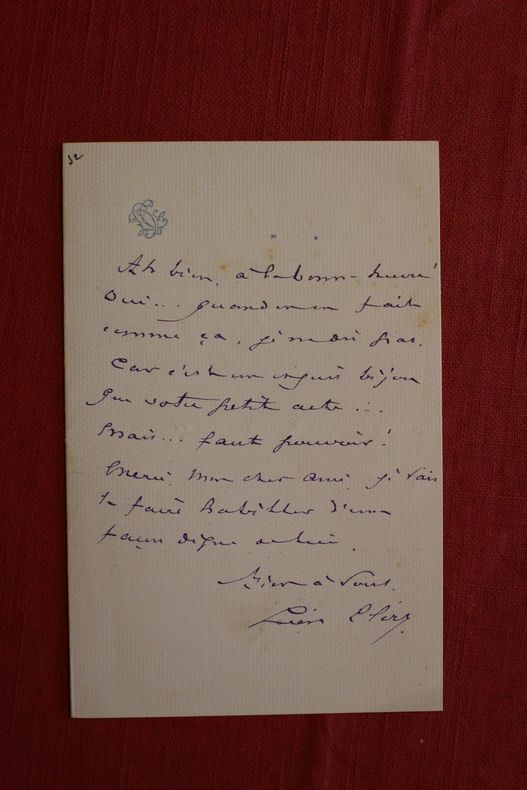 Ah bien, à la bonne heure !
Oui... quand on en fait
comme ça, je ne dis pas.
Car c'est un exquis bijou
que votre petit acte...
Mais... faut pouvoir !
Merci, mon cher ami, je vais
le faire habiller d'une
façon digne de lui.
Bien à vous.
Léon